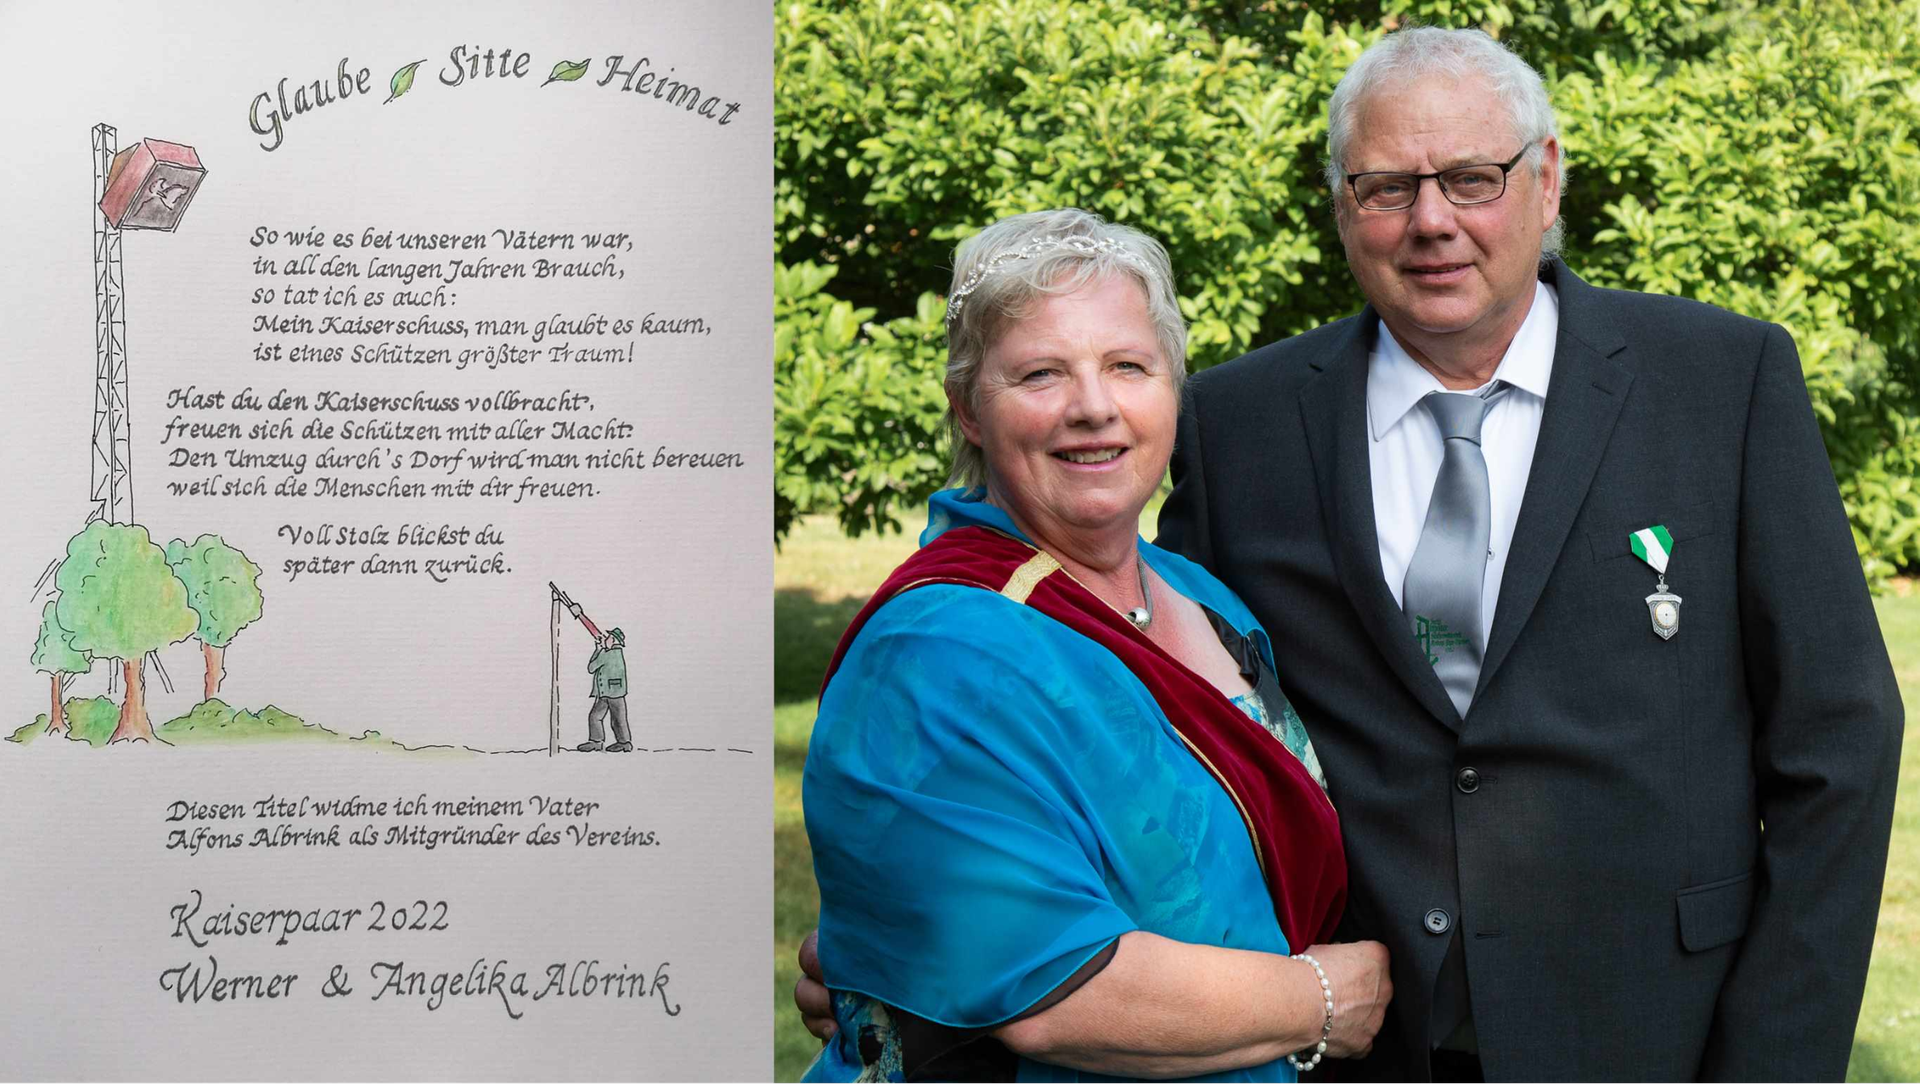 Glaube Sitte Heimat
So wie es bei unseren Vätern war,
in all den langen Jahren Brauch,
so tat ich es auch:
Mein Kaiserschuss, man glaubt es kaum,
ist eines Schützen größter Traum!
Hast du den Kaiserschuss vollbracht,
freuen sich die Schützen mit aller Macht.
Den Umzug durch's Dorf wird man nicht bereuen
weil sich die Menschen mit dir freuen.
Voll Stolz blickst du
später dann zurück.
Diesen Titel widme ich meinem Vater
Alfons Albrink als Mitgründer des Vereins.
Kaiserpaar 2022
Werner & Angelika Albrink